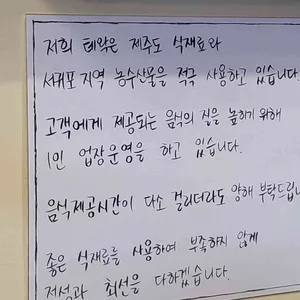 저희 테왁은 제주도 식재료와
서귀포지역 농수산물을 적극 사용하고 있습니다.
고객에게 제공되는 음식의 질을 높히기 위해
1인 업장운영을 하고 있습니다.
음식제공시간이 다소 걸리더라도 양해 부탁드립니
좋은 식재료를 사용하여 부족하지 않게
정성과 최선을 다하겠습니다.